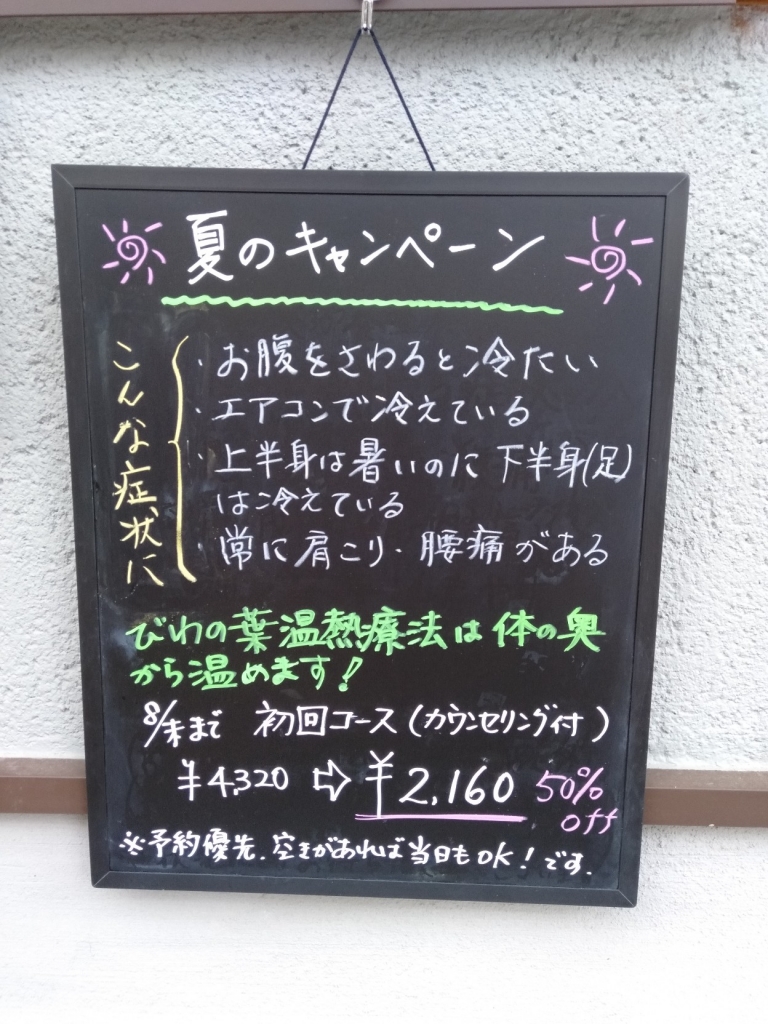 夏のキャンペーン
こんな症状に
・お腹をさわると冷たい
・エアコンで冷えている
・上半身は暑いのに下半身(足)
は冷えている
・常に肩こり・腰痛がある
びわの葉温熱療法は体の奥
から温めます!
8/末まで 初回コース(カウンセリング付)
¥4,320 ⇨ ¥2,160 50%
off
※予約優先.空きがあれば当日もOK!です.